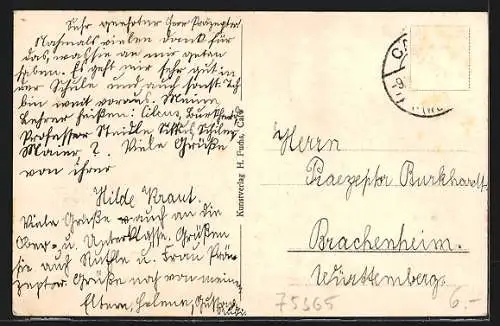 Sehr geehrter Herr Präzeptor
Nochmals vielen Dank für
das, was sie an mir getan
haben. Es geht mir sehr gut in
der Schule und auch sonst. Ich
bin weit voraus. Meine
Lehrer heißen:
Professor
Maier, ?. Viele Grüße
von ihrer
Hilde Kraut.
Viele Grüße auch an die
Ober- u. Unterklasse. Grüßen
sie auch u. Frau Prä-
zeptor. Grüße noch von meinen
Eltern, Helene,
Kunstverlag H. Fuchs, Calw
Herrn
Praezeptor Burkhardt
Brackenheim.
Württemberg.
75365
6.-